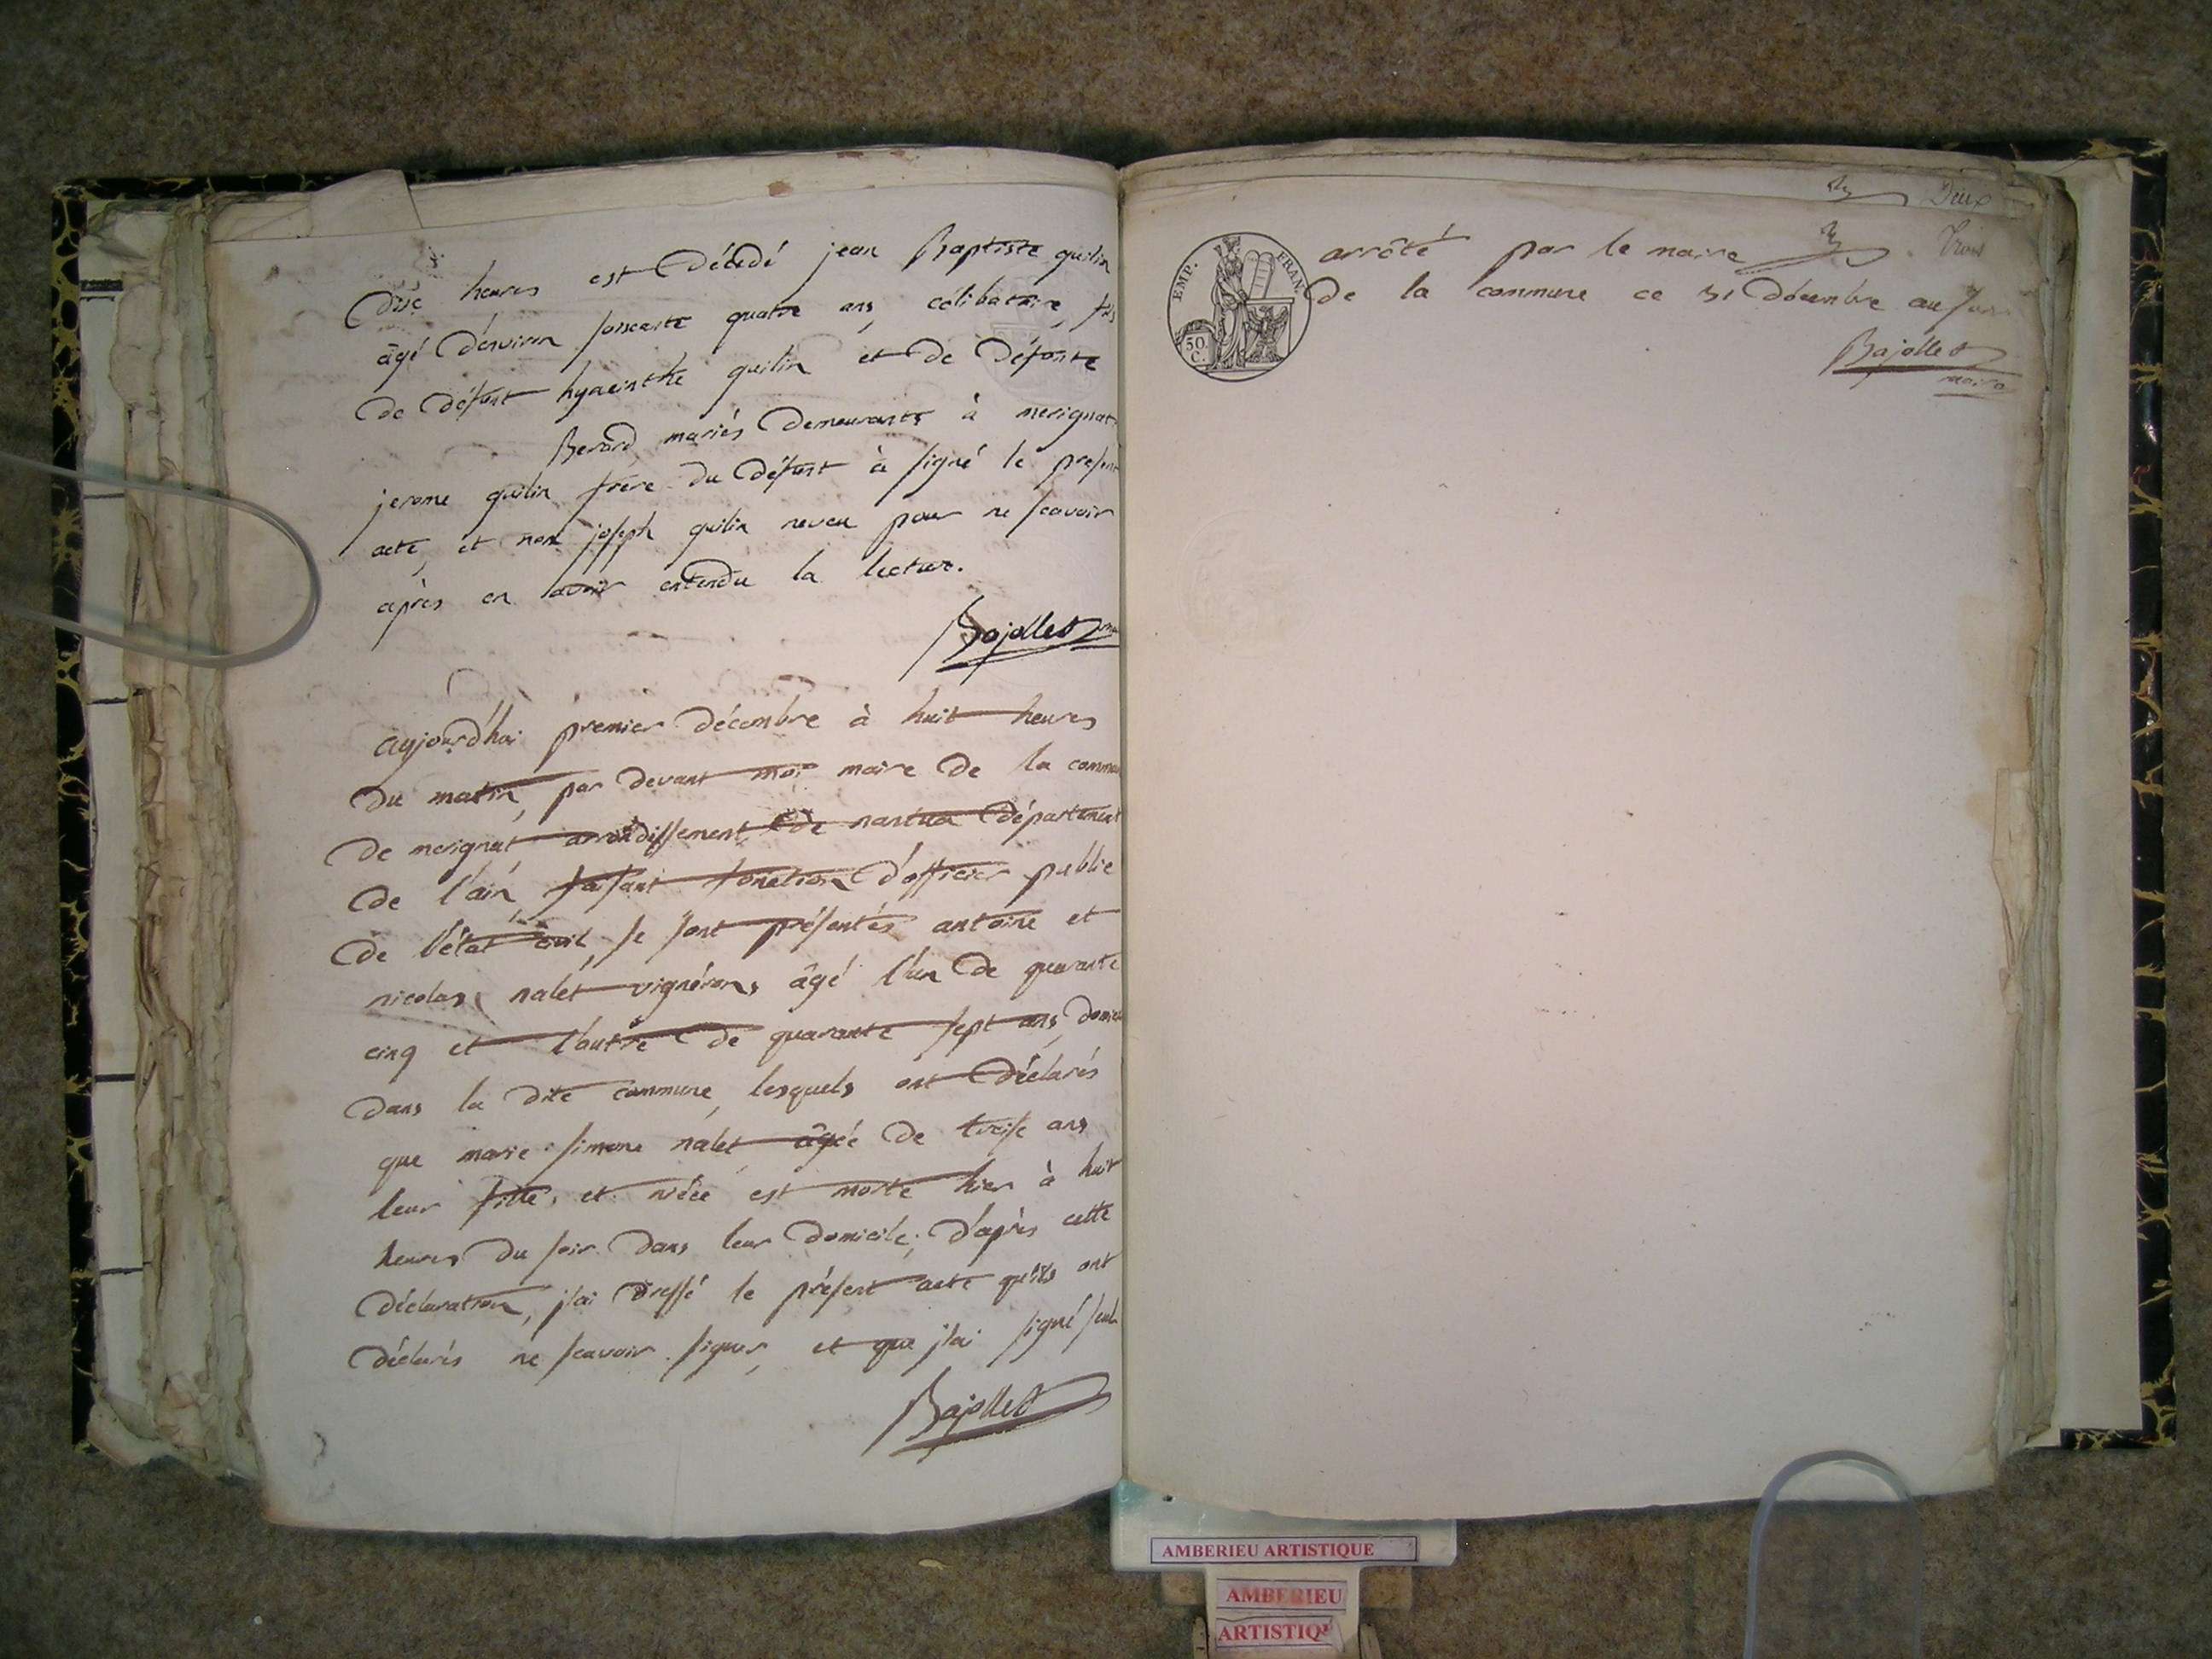 dixe heures est décédé jean Baptiste quilin
âgé d'environ soisente quatre ans, célibataire, fils
de défunt hyacinthe quilin et de défunte
Berard, mariés demeurants à merignat
jerome quilin frère du défunt à signé le present
acte, et non joseph quilin neveu pour ne scavoir
après en avoir entendu la lecture.
Bajollet
aujourd'hui premier décembre à huit heures
du matin, par devant moi maire de la commune
de merignat arrondissement de nantua département
de l'ain, faisant fonction d'officier public
de l'état civil, se sont présentés antoine et
nicolas nalet vignérons âgé l'un de quarante
cinq et l'autre de quarante sept ans,
dans la dite commune, lesquels ont déclarés
que marie simone nalet âgée de treise ans
leur fille, et niéce est morte hier à huit
heures du soir dans leur domicile; d'après cette
déclaration, j'ai dressé le présent acte qu'ils ont
déclarés ne scavoir signer, et que j'ai signé seul
Bajollet
Deux
Trois
EMP. FRAN.
50.
C.
arrôté par le maire
de la commune ce 31 décembre au soir
Bajollet
maire
AMBERIEU ARTISTIQUE
AMBERIEU
ARTISTIQ